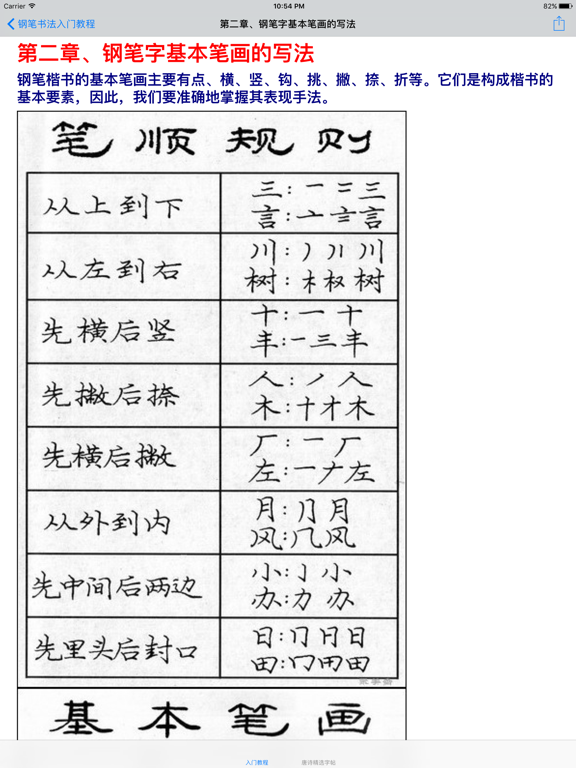 Carrier 10:54 PM 82%
钢笔书法入门教程 第二章、钢笔字基本笔画的写法
第二章、钢笔字基本笔画的写法
钢笔楷书的基本笔画主要有点、横、竖、钩、挑、撇、捺、折等。它们是构成楷书的
基本要素，因此，我们要准确地掌握其表现手法。
笔顺规则
从上到下 三：一 二 三
言：亠 亖 言
从左到右 川：丿 川
树：木 权 树
先横后竖 十：一 十
丰：一 三 丰
先撇后捺 人：丿 人
木：十 才 木
先横后撇 厂：一 厂
左：一 𠂇 左
从外到内 月：⺆ 月
风：几 风
先中间后两边 小：亅 小
办：力 办
先里头后封口 日：冂 日 日
田：冂 田
基本笔画
入门教程 唐诗精选字帖